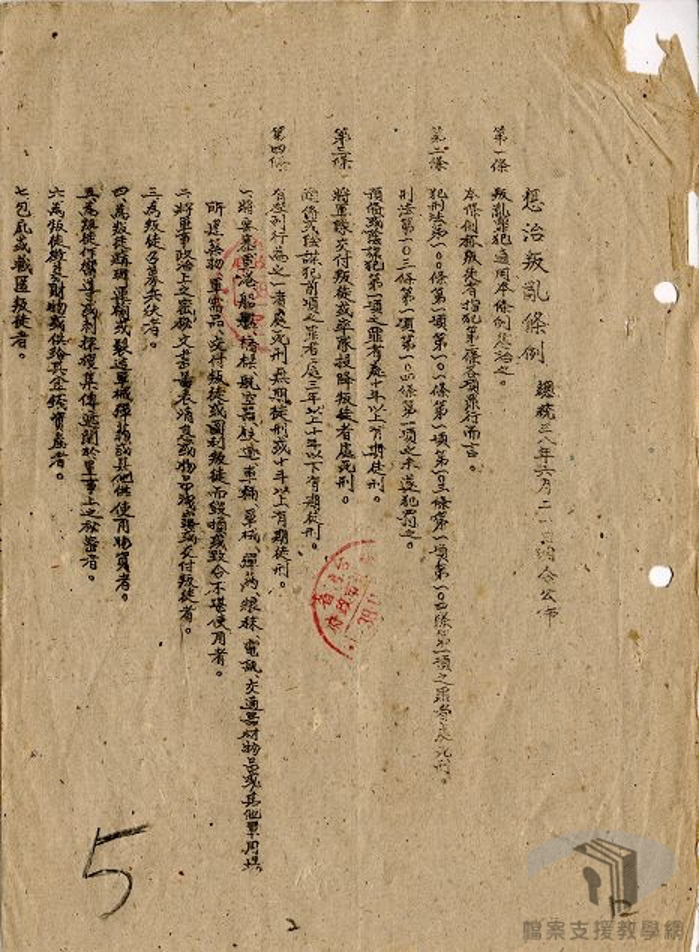 懲治叛亂條例
總統三八年六月二一日制令公布
第一條 叛亂罪犯適用本條例懲治之。
本條例稱叛徒者指犯第二條各項罪行而言。
第二條 犯刑法第一〇〇條第一項第一〇一條第一項第一〇三條第一項第一〇四條第一項之罪者處死刑。
刑法第一〇三條第一項第一〇四條第一項之未遂犯罰之。
預備或陰謀犯第一項之罪者處十年以上有期徒刑。
第三條 將軍隊交付叛徒或率隊投降叛徒者處死刑。
預備或陰謀犯前項之罪者處三年以上十年以下有期徒刑。
第四條 有左列行為之一者處死刑無期徒刑或十年以上有期徒刑。
一、將要塞軍港、船艦、橋樑、航空器、鐵道車輛、軍械、彈葯、糧秣、電訊、交通器材物品或其他軍用場
所建築物、軍需品、交付叛徒或圖利叛徒而毀損或致令不堪使用者。
二、將軍事政治上之秘密文書圖表消息或物品洩露或交付叛徒者。
三、為叛徒召募兵伕者。
四、為叛徒購辦運輸或製造軍械彈葯或其他供使用物質者。
五、為叛徒作嚮導或刺探搜集傳遞關於軍事上之秘密者。
六、為叛徒徵募財物或供給其金錢資產者。
七、包庇或藏匿叛徒者。
5
2
檔案支援教學網